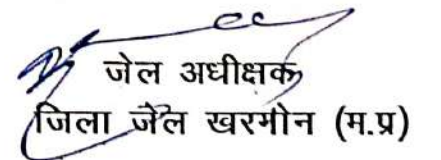 जेल अधीक्षक
जिला जेल खरगोन (म.प्र)